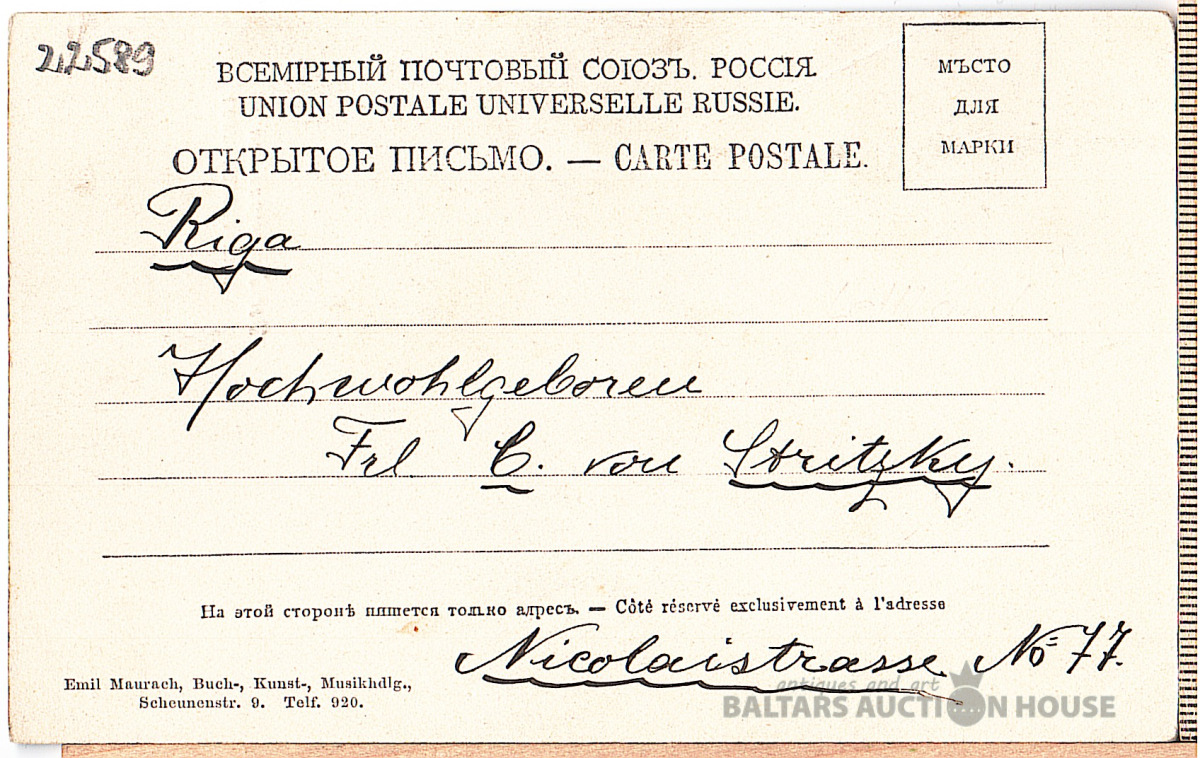 22589
ВСЕМІРНЫЙ ПОЧТОВЫЙ СОЮЗЪ. РОССІЯ.
UNION POSTALE UNIVERSELLE RUSSIE.
ОТКРЫТОЕ ПИСЬМО. — CARTE POSTALE.
МѢСТО
ДЛЯ
МАРКИ
Riga
Hochwohlgeboren
Frl C. von Stritzky.
На этой сторонѣ пишется только адресъ. — Côté réservé exclusivement à l'adresse
Nicolaistrasse No 77.
Emil Maurach, Buch-, Kunst-, Musikhdlg.,
Scheunenstr. 9. Telf. 920.
antiques and art
BALTARS AUCTION HOUSE